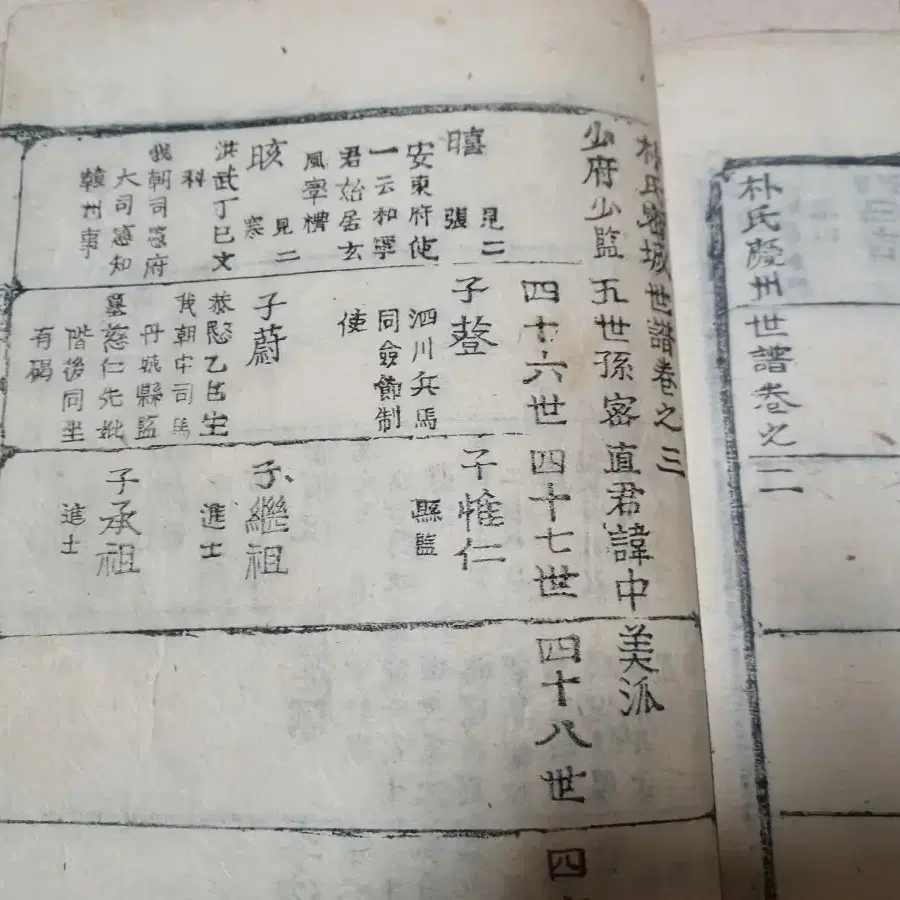 朴氏密城世譜卷之三
少府少監五世孫密直君諱中美派
四十六世
四十七世
四十八世
四
暿
見二
張
安東府使
一云和寧
君始居玄
風率禮
晐
見二
寨
洪武丁巳文
科
我朝司憲府
大司憲知
韓州事
子䔲
泗川兵馬
同僉節制
使
子蔚
恭愍乙巳生
我朝中司馬
丹城縣監
墓慈仁先妣
階後同坐
有碣
子惟仁
縣監
子繼祖
進士
子承祖
進士
朴氏慶州世譜卷之二